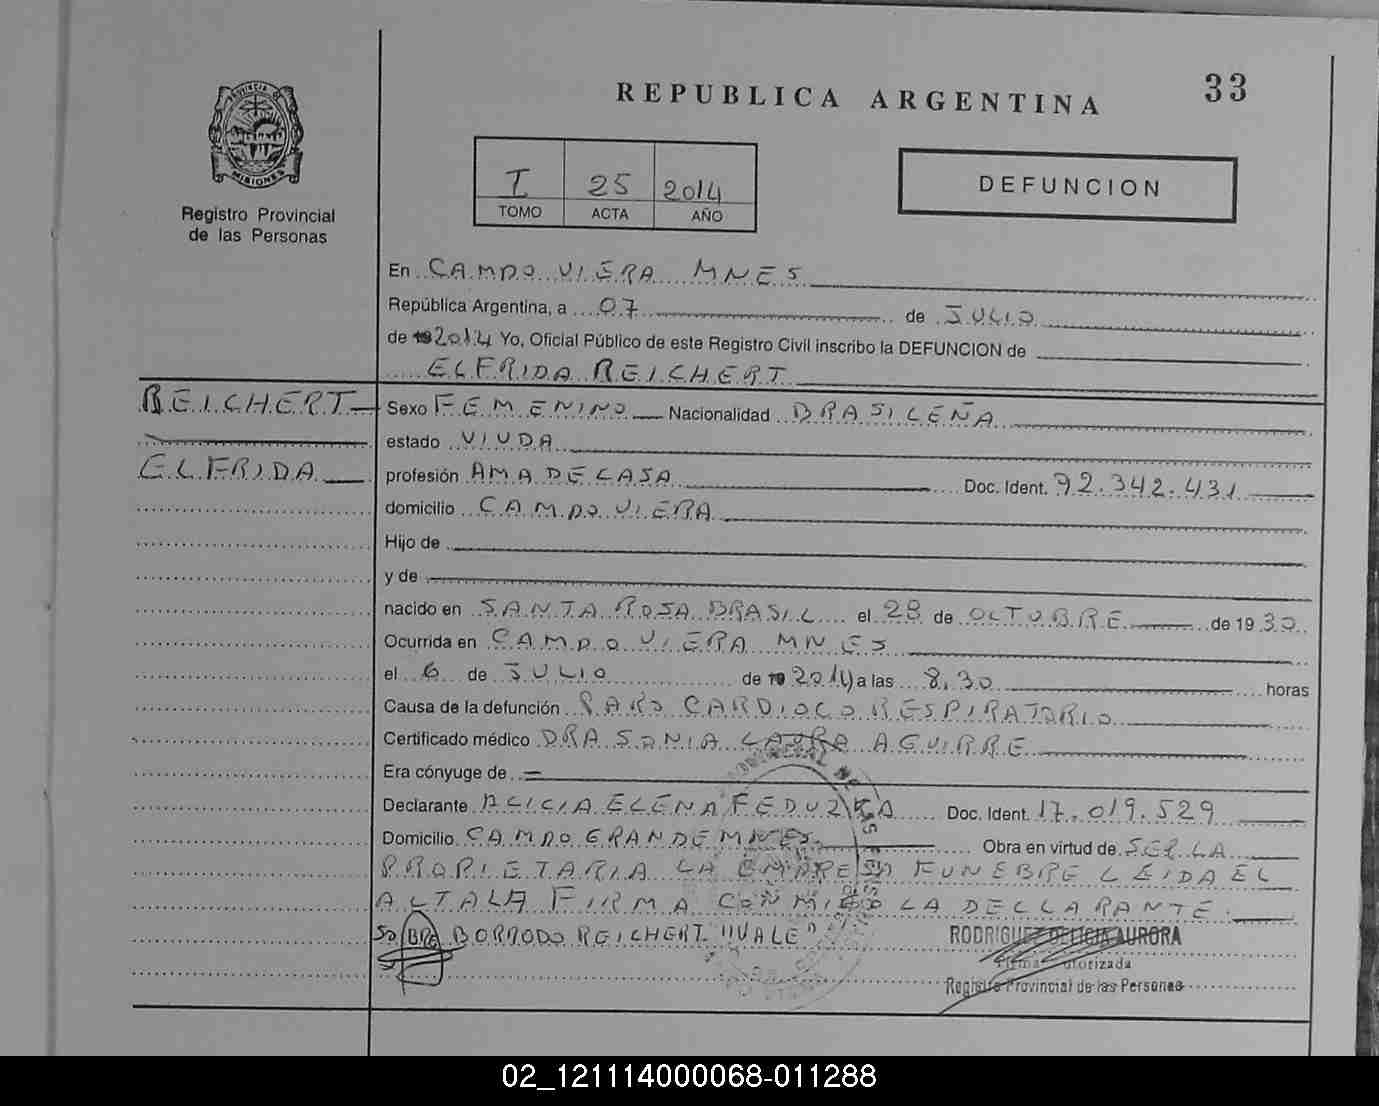 REPUBLICA ARGENTINA
33
PROVINCIA DE
MISIONES
Registro Provincial
de las Personas
I 25 2014
TOMO ACTA AÑO
DEFUNCION
En CAMPO VIERA MNES
República Argentina, a 07 de JULIO
de 192014 Yo, Oficial Público de este Registro Civil inscribo la DEFUNCION de
ELFRIDA REICHERT
REICHERT
ELFRIDA
Sexo FEMENINO Nacionalidad BRASILEÑA
estado VIUDA
profesión AMA DE CASA Doc. Ident. 92.342.431
domicilio CAMPO VIERA
Hijo de
y de
nacido en SANTA ROSA BRASIL el 28 de OCTUBRE de 1930
Ocurrida en CAMPO VIERA MNES
el 6 de JULIO de 192014 a las 8,30 horas
Causa de la defunción PARO CARDIOCORESPIRATORIO
Certificado médico DRA SONIA LAURA AGUIRRE
Era cónyuge de =
Declarante ALICIA ELENA FEDUZKA Doc. Ident. 17.019.529
Domicilio CAMPO GRANDE MNES. Obra en virtud de SER LA
PROPIETARIA LA EMPRESA FUNEBRE LEIDA EL
ACTA LA FIRMA CONMIGO LA DECLLARANTE.
SOBRE BORRODO REICHERT "VALE"
RODRIGUEZ DELICIA AURORA
Firma Autorizada
Registro Provincial de las Personas
02_121114000068-011288